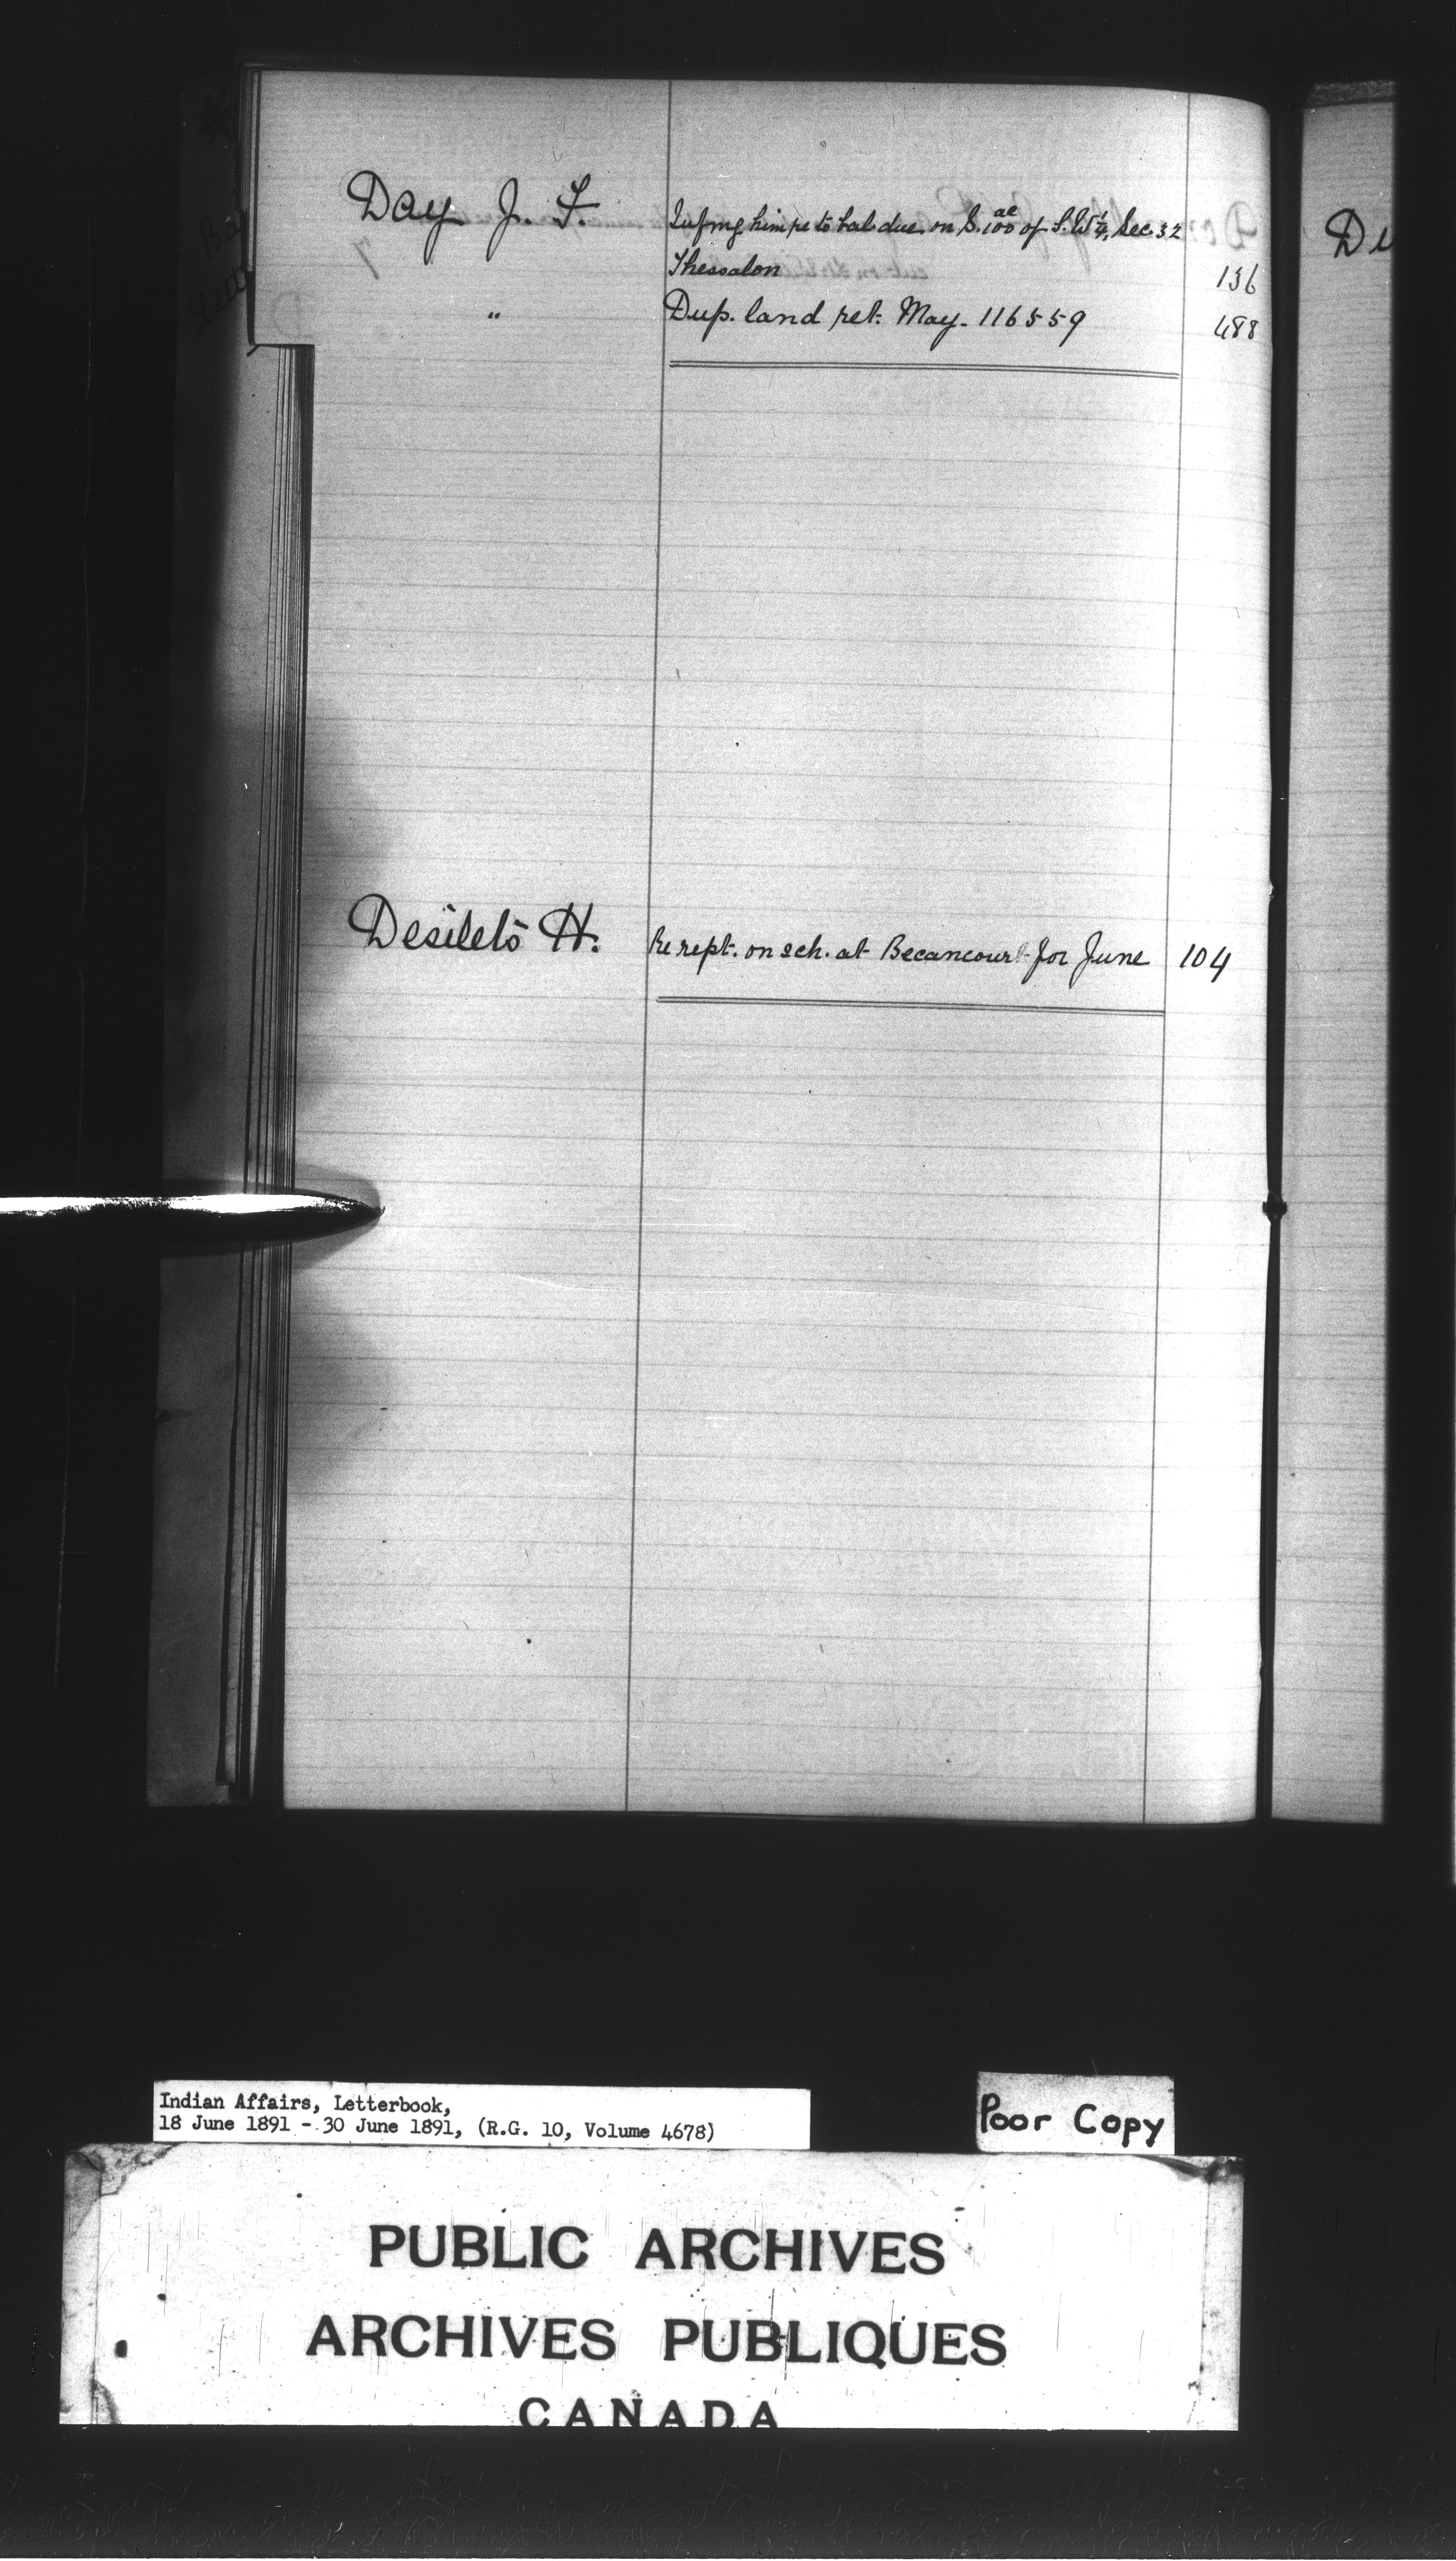 Day J. F.
Infmg him re to bal due on S. 100 ac of S.W 1/4, Sec 32
Thessalon 136
" Dup. land ret. May. 116559 488
Desilets H. Re rept. on sch. at Becancourt for June 104
De
Indian Affairs, Letterbook,
18 June 1891 - 30 June 1891, (R.G. 10, Volume 4678)
Poor Copy
PUBLIC ARCHIVES
ARCHIVES PUBLIQUES
CANADA